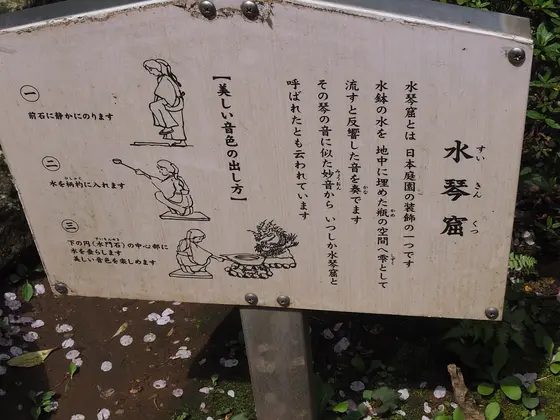 水琴窟
すいきんくつ
水琴窟とは 日本庭園の装飾の一つです
水鉢の水を 地中に埋めた瓶の空間へ雫として
かめ
しずく
流すと反響した音を奏でます
かな
その琴の音に似た妙音から いつしか水琴窟と
みょうおん
呼ばれたとも云われています
【美しい音色の出し方】
一
前石に静かにのります
二
水を柄杓に入れます
ひしゃく
三
下の円(水門石)の中心部に
水を垂らします
美しい音色を楽しめます